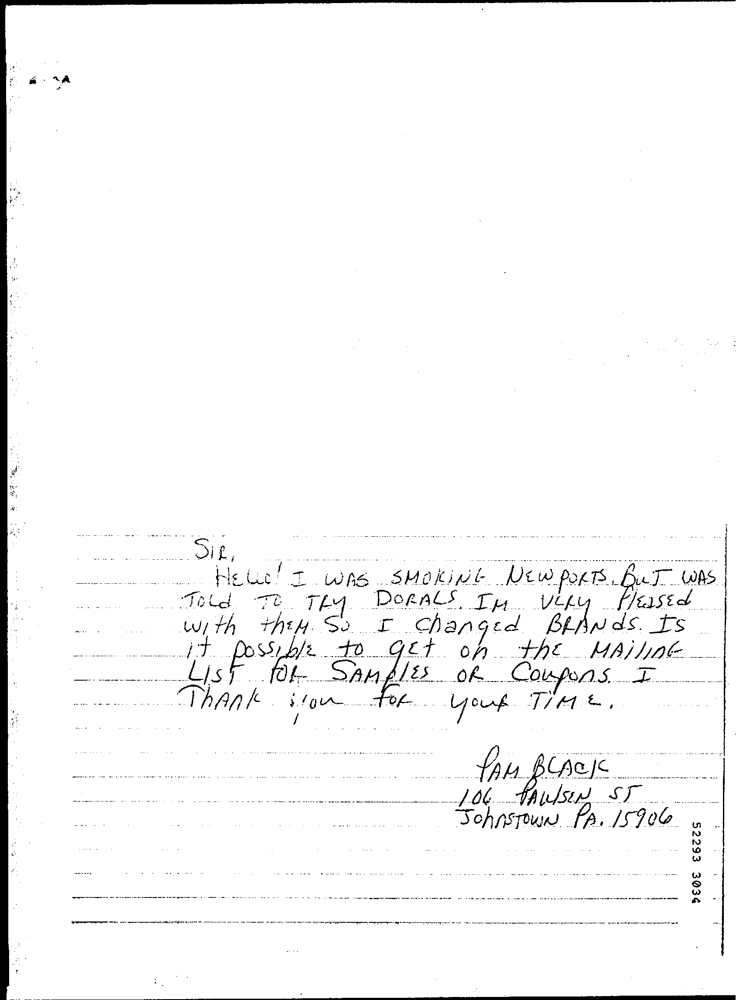 SIR,
HELLO! I WAS SMOKING NEWPORTS. BUT WAS
TOLD TO TRY DORALS. IM VERY PLEASED
WITH THEM. SO I CHANGED BRANDS. IS
it possible to get on the MAILING
LIST FOR SAMPLES OR COUPONS. I
THANK you for your TIME.
PAM BLACK
106 ST
JOHNSTOWN PA. 15906
52293 3034